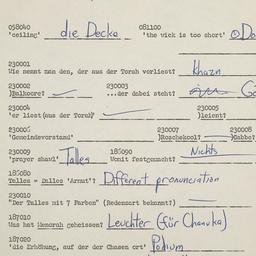 058040 081100
'ceiling' die Decke 'the wick is too short'
230001
Wie nennt man den, der aus der Torah vorliest? Khazn
230002 230003
)Balkoore? ...der dabei steht?
230004 230005
'er liest (aus der Torah)' )leient?
230006 230007 230008
'Gemeindevorstand' )Roschekool? )Gabbe?
230009 185090
'prayer shawl' Talles Womit festgemacht? Nichts
185080
Talles = Dalles 'Armut'? Different pronunciation
230010
"Der Talles mit 7 Farben" (Redensart bekannt?)
187010
Was hat Menorah geheissen? Leuchter (für Chanuka)
187020
'die Erhöhung, auf der der Chasen ort' Podium